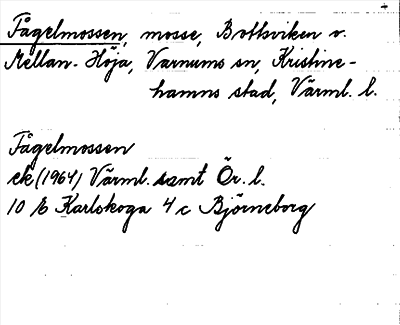 Fågelmossen, mosse, Bottsviken v.
Mellan-Höja, Varnums sn, Kristine-
hamns stad, Värml. l.
Fågelmossen
ek (1964) Värml. samt Ör. l.
10 E Karlskoga 4 c Björneborg